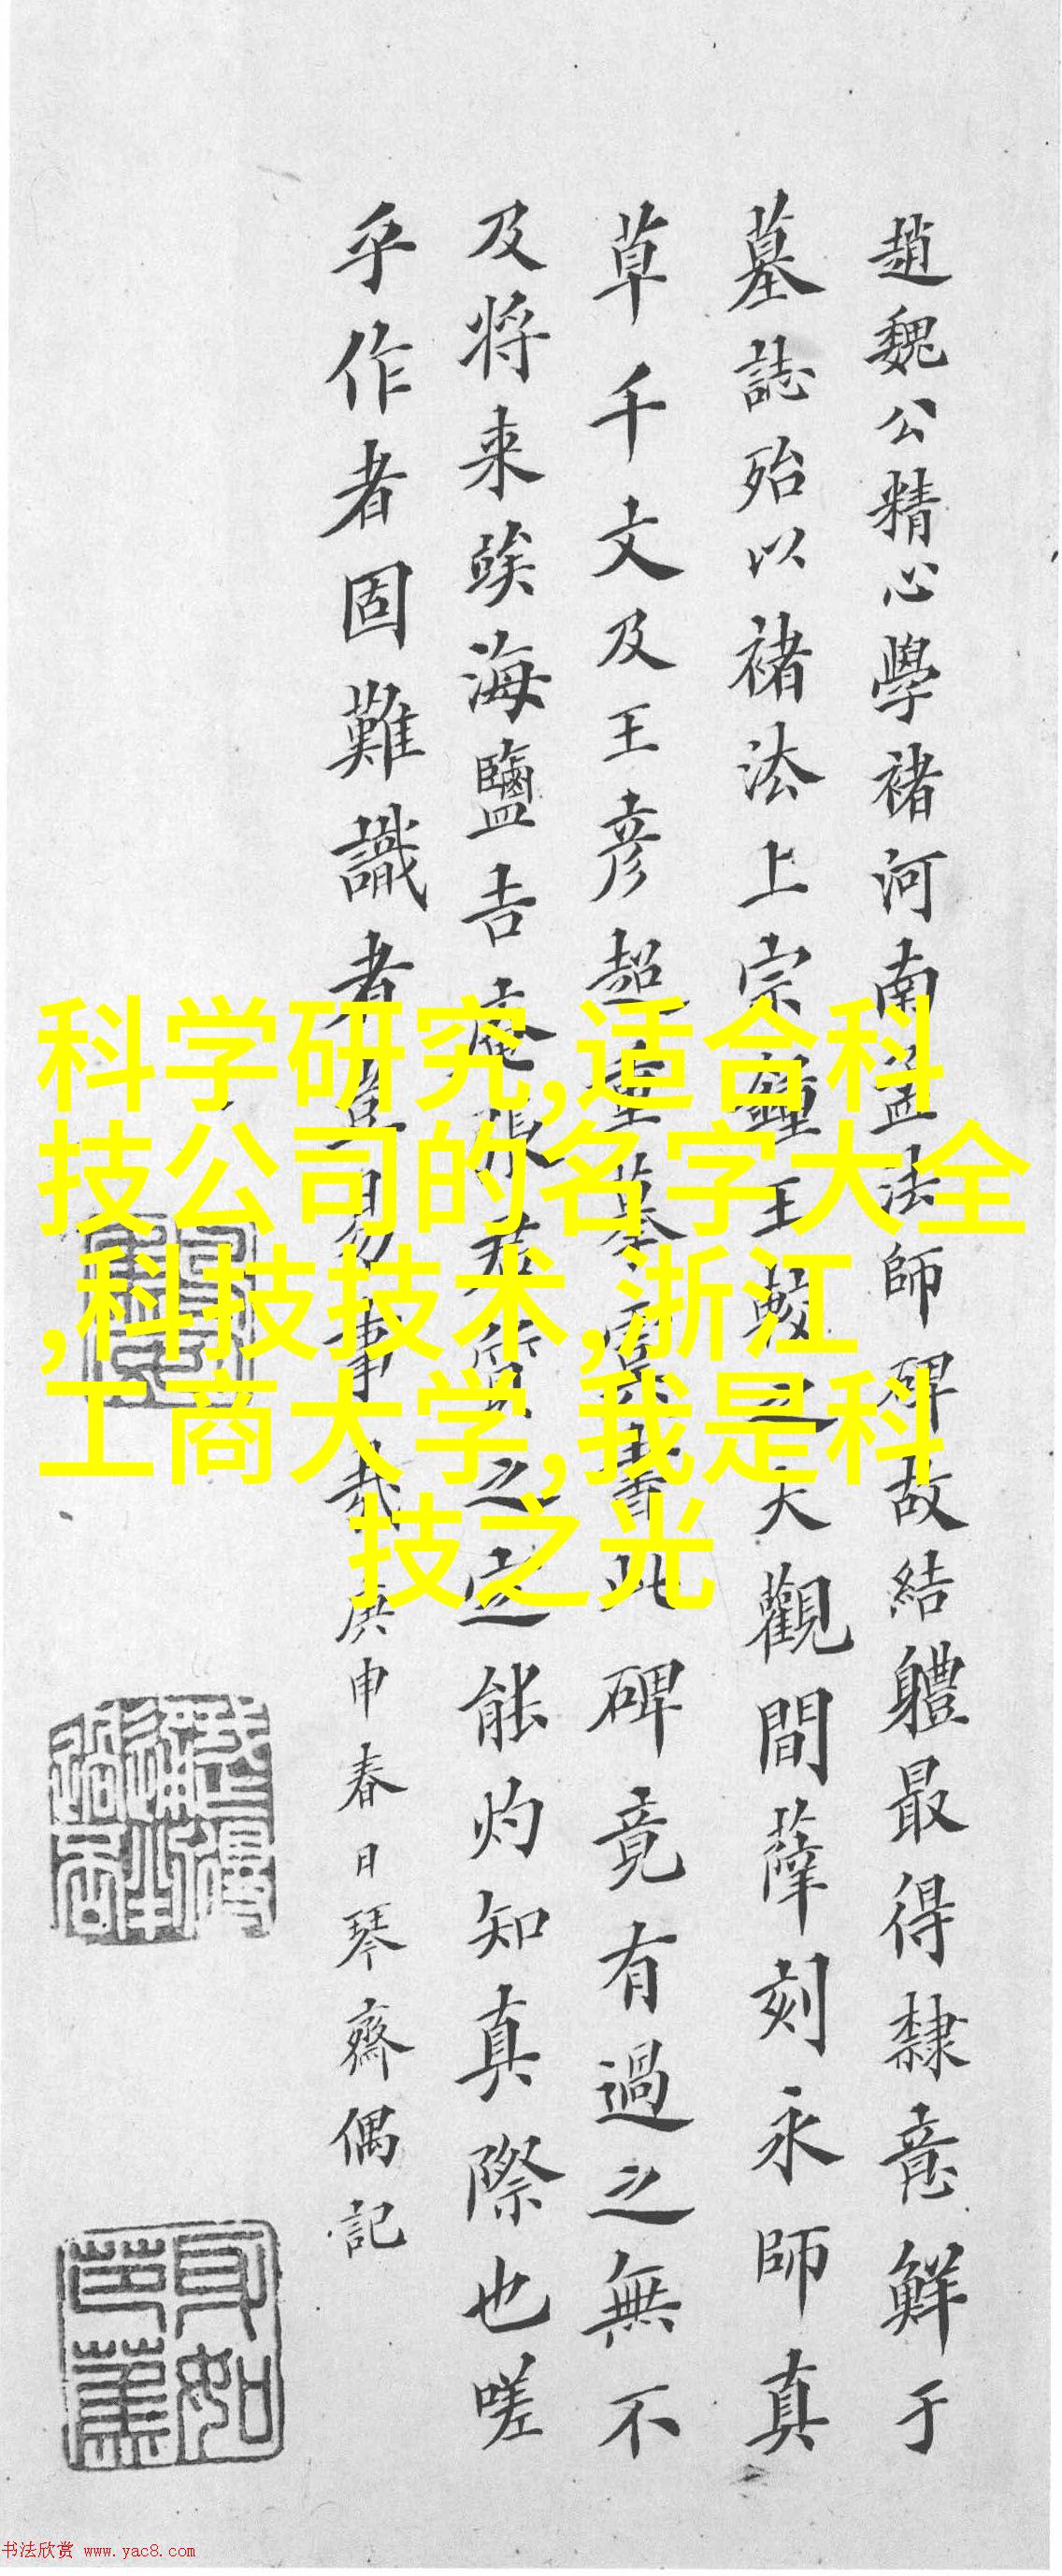 趙魏公精心學褚河南孟法師碑故結軆最得隸意鮮于
墓誌殆以褚法上宗鍾王較之大觀間薛刻永師真
草千文及王彥超重摹虞書此碑竟有過之無不
及將来竢海鹽吉庵張君質之定能灼知真際也嗟
乎作者固難識者豈易事哉庚申春日琴齋偶記
科学研究,适合科
技公司的名字大全
,科技技术,浙江
工商大学,我是科
技之光
书法欣赏 www.yac8.com